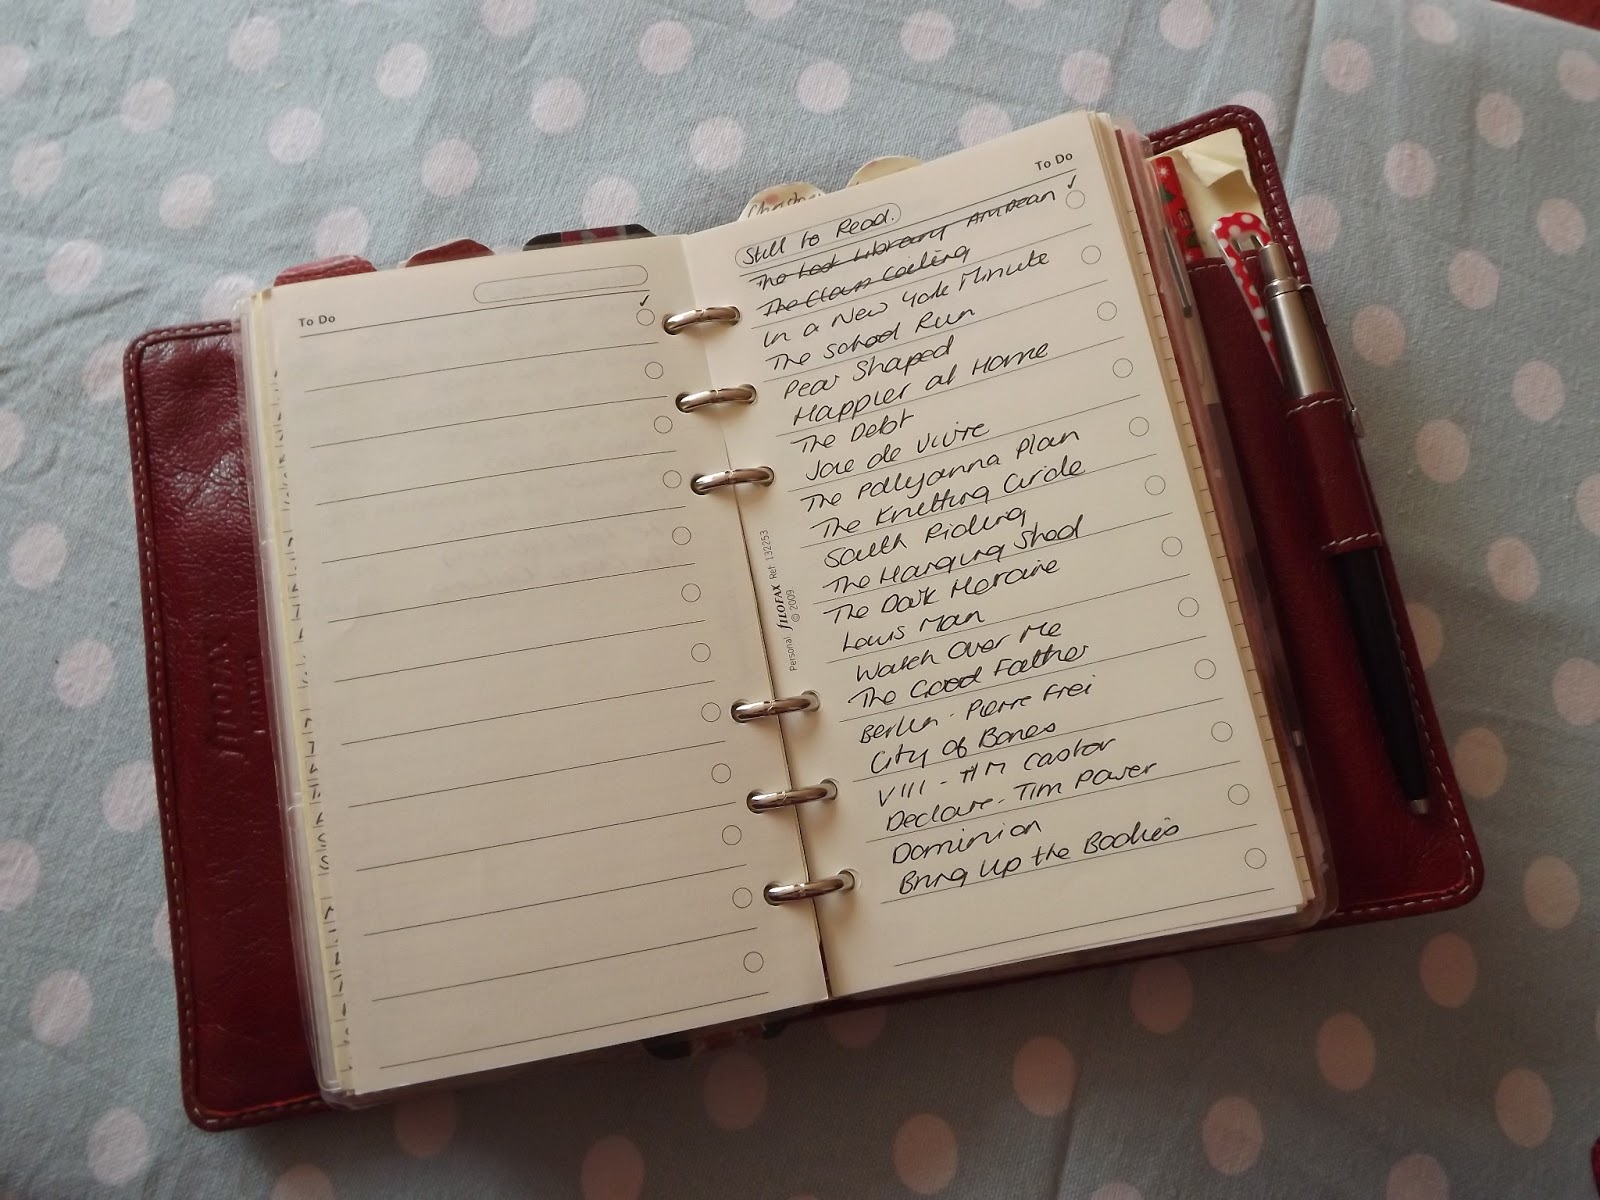 To Do
✓
FILOFAX
Personal FILOFAX Ref 132253
© 2009
To Do
✓
Still to Read.
The Lost Library
The Glass Ceiling
In a New York Minute
The School Run
Pear Shaped
Happier at Home
The Debt
Joie de Vivre
The Pollyanna Plan
The Knitting Circle
South Riding
The Hanging Shed
The Dark Heroine
Louis Man
Watch Over Me
The Good Father
Berlin - Pierre Frei
City of Bones
VIII - H M Castor
Declare - Tim Power
Dominion
Bring Up the Bodies